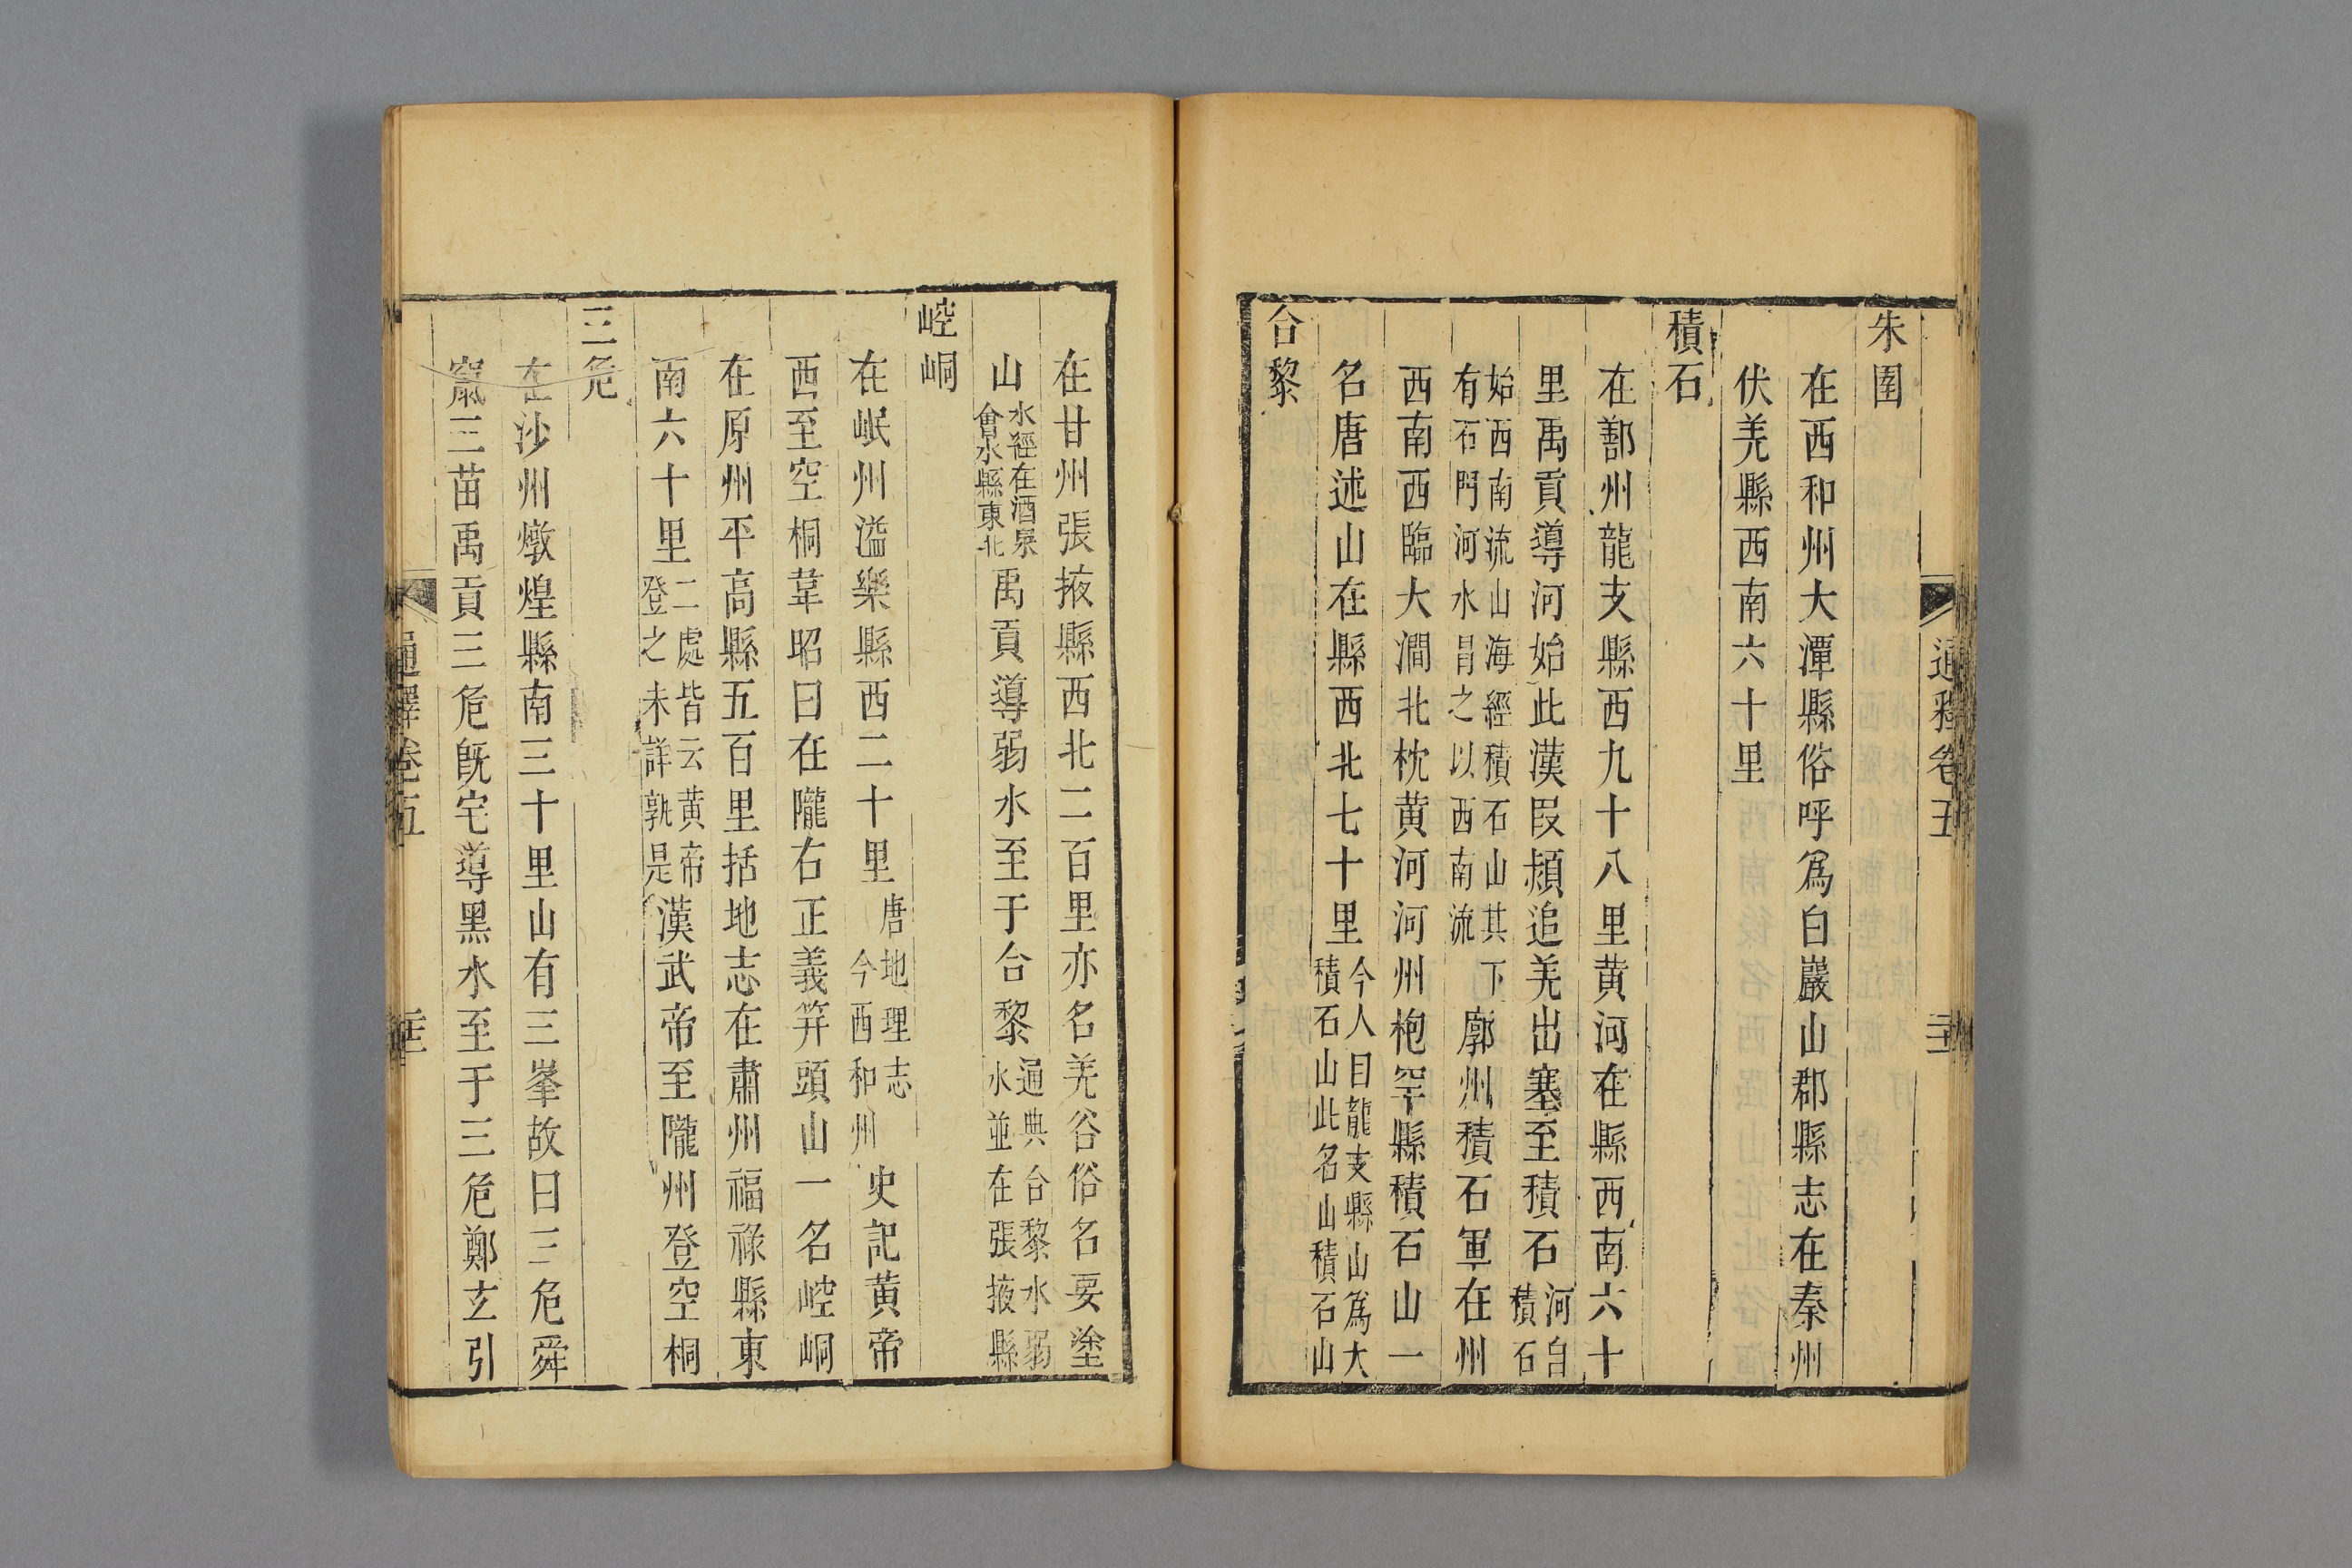 朱圉
在西和州大潭縣俗呼爲白巖山郡縣志在秦州
伏羌縣西南六十里
積石
在鄯州龍支縣西九十八里黄河在縣西南六十
里禹貢導河始此漢段熲追羌出塞至積石河自
積石
始西南流山海經積石山其下
有石門河水冒之以西南流廓州積石軍在州
西南西臨大澗北枕黄河河州枹罕縣積石山一
名唐述山在縣西北七十里今人目龍支縣山爲大
積石山此名山積石山
合黎
通釋卷五
在甘州張掖縣西北二百里亦名羌谷俗名要塗
山水經在酒泉
會水縣東北禹貢導弱水至于合黎通典合黎水弱
水並在張掖縣
崆峒
在岷州溢樂縣西二十里唐地理志
今西和州史記黄帝
西至空桐韋昭曰在隴右正義笄頭山一名崆峒
在原州平高縣五百里括地志在肅州福祿縣東
南六十里二處皆云黄帝
登之未詳孰是漢武帝至隴州登空桐
三危
在沙州燉煌縣南三十里山有三峯故曰三危舜
竄三苗禹貢三危既宅導黑水至于三危鄭玄引
通釋卷五